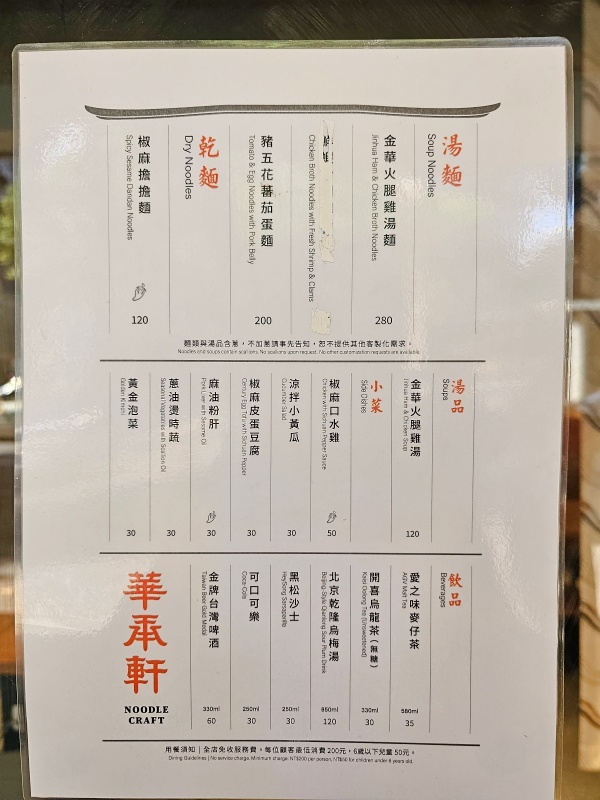 湯麵
Soup Noodles
金華火腿雞湯麵
Jinhua Ham & Chicken Broth Noodles
280
Chicken Broth Noodles with Fresh Shrimp & Clams
豬五花蕃茄蛋麵
Tomato & Egg Noodles with Pork Belly
200
乾麵
Dry Noodles
椒麻擔擔麵
Spicy Sesame Dandan Noodles
120
麵類與湯品含蔥，不加蔥請事先告知，恕不提供其他客製化需求。
Noodles and soups contain scallions. No scallions upon request. No other customization requests are available.
湯品
Soups
金華火腿雞湯
Jinhua Ham & Chicken Soup
120
小菜
Side Dishes
椒麻口水雞
Chicken with Sichuan Pepper Sauce
50
涼拌小黃瓜
Cucumber Salad
30
椒麻皮蛋豆腐
Century Egg Tofu with Sichuan Pepper
30
麻油粉肝
Pork Liver with Sesame Oil
30
蔥油燙時蔬
Seasonal Vegetables with Scallion Oil
30
黃金泡菜
Golden Kimchi
30
飲品
Beverages
愛之味麥仔茶
AGV Malt Tea
580ml
35
開喜烏龍茶（無糖）
Kaisi Oolong Tea (Unsweetened)
330ml
30
北京乾隆烏梅湯
Beijing-Style Qianlong Sour Plum Drink
850ml
120
黑松沙士
HeySong Sarsaparilla
250ml
30
可口可樂
Coca-Cola
250ml
30
金牌台灣啤酒
Taiwan Beer Gold Medal
330ml
60
華承軒
NOODLE
CRAFT
用餐須知｜全店免收服務費。每位顧客最低消費200元，6歲以下兒童50元。
Dining Guidelines | No service charge. Minimum charge: NT$200 per person, NT$50 for children under 6 years old.